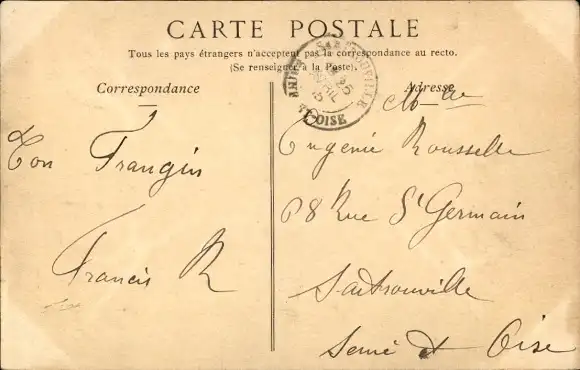 CARTE POSTALE
Tous les pays étrangers n'acceptent pas la correspondance au recto.
(Se renseigner à la Poste).
Correspondance
Ton Frangin
Francis R
Adresse
Mlle
Eugénie Rousselle
68 Rue St Germain
Sartrouville
Seine et Oise
SARTROUVILLE
OISE